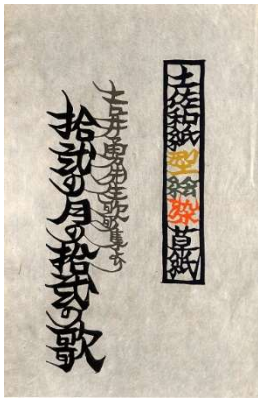 土佐和紙型絵染草紙
吉井勇先生歌集より
拾弐の月の拾弐の歌